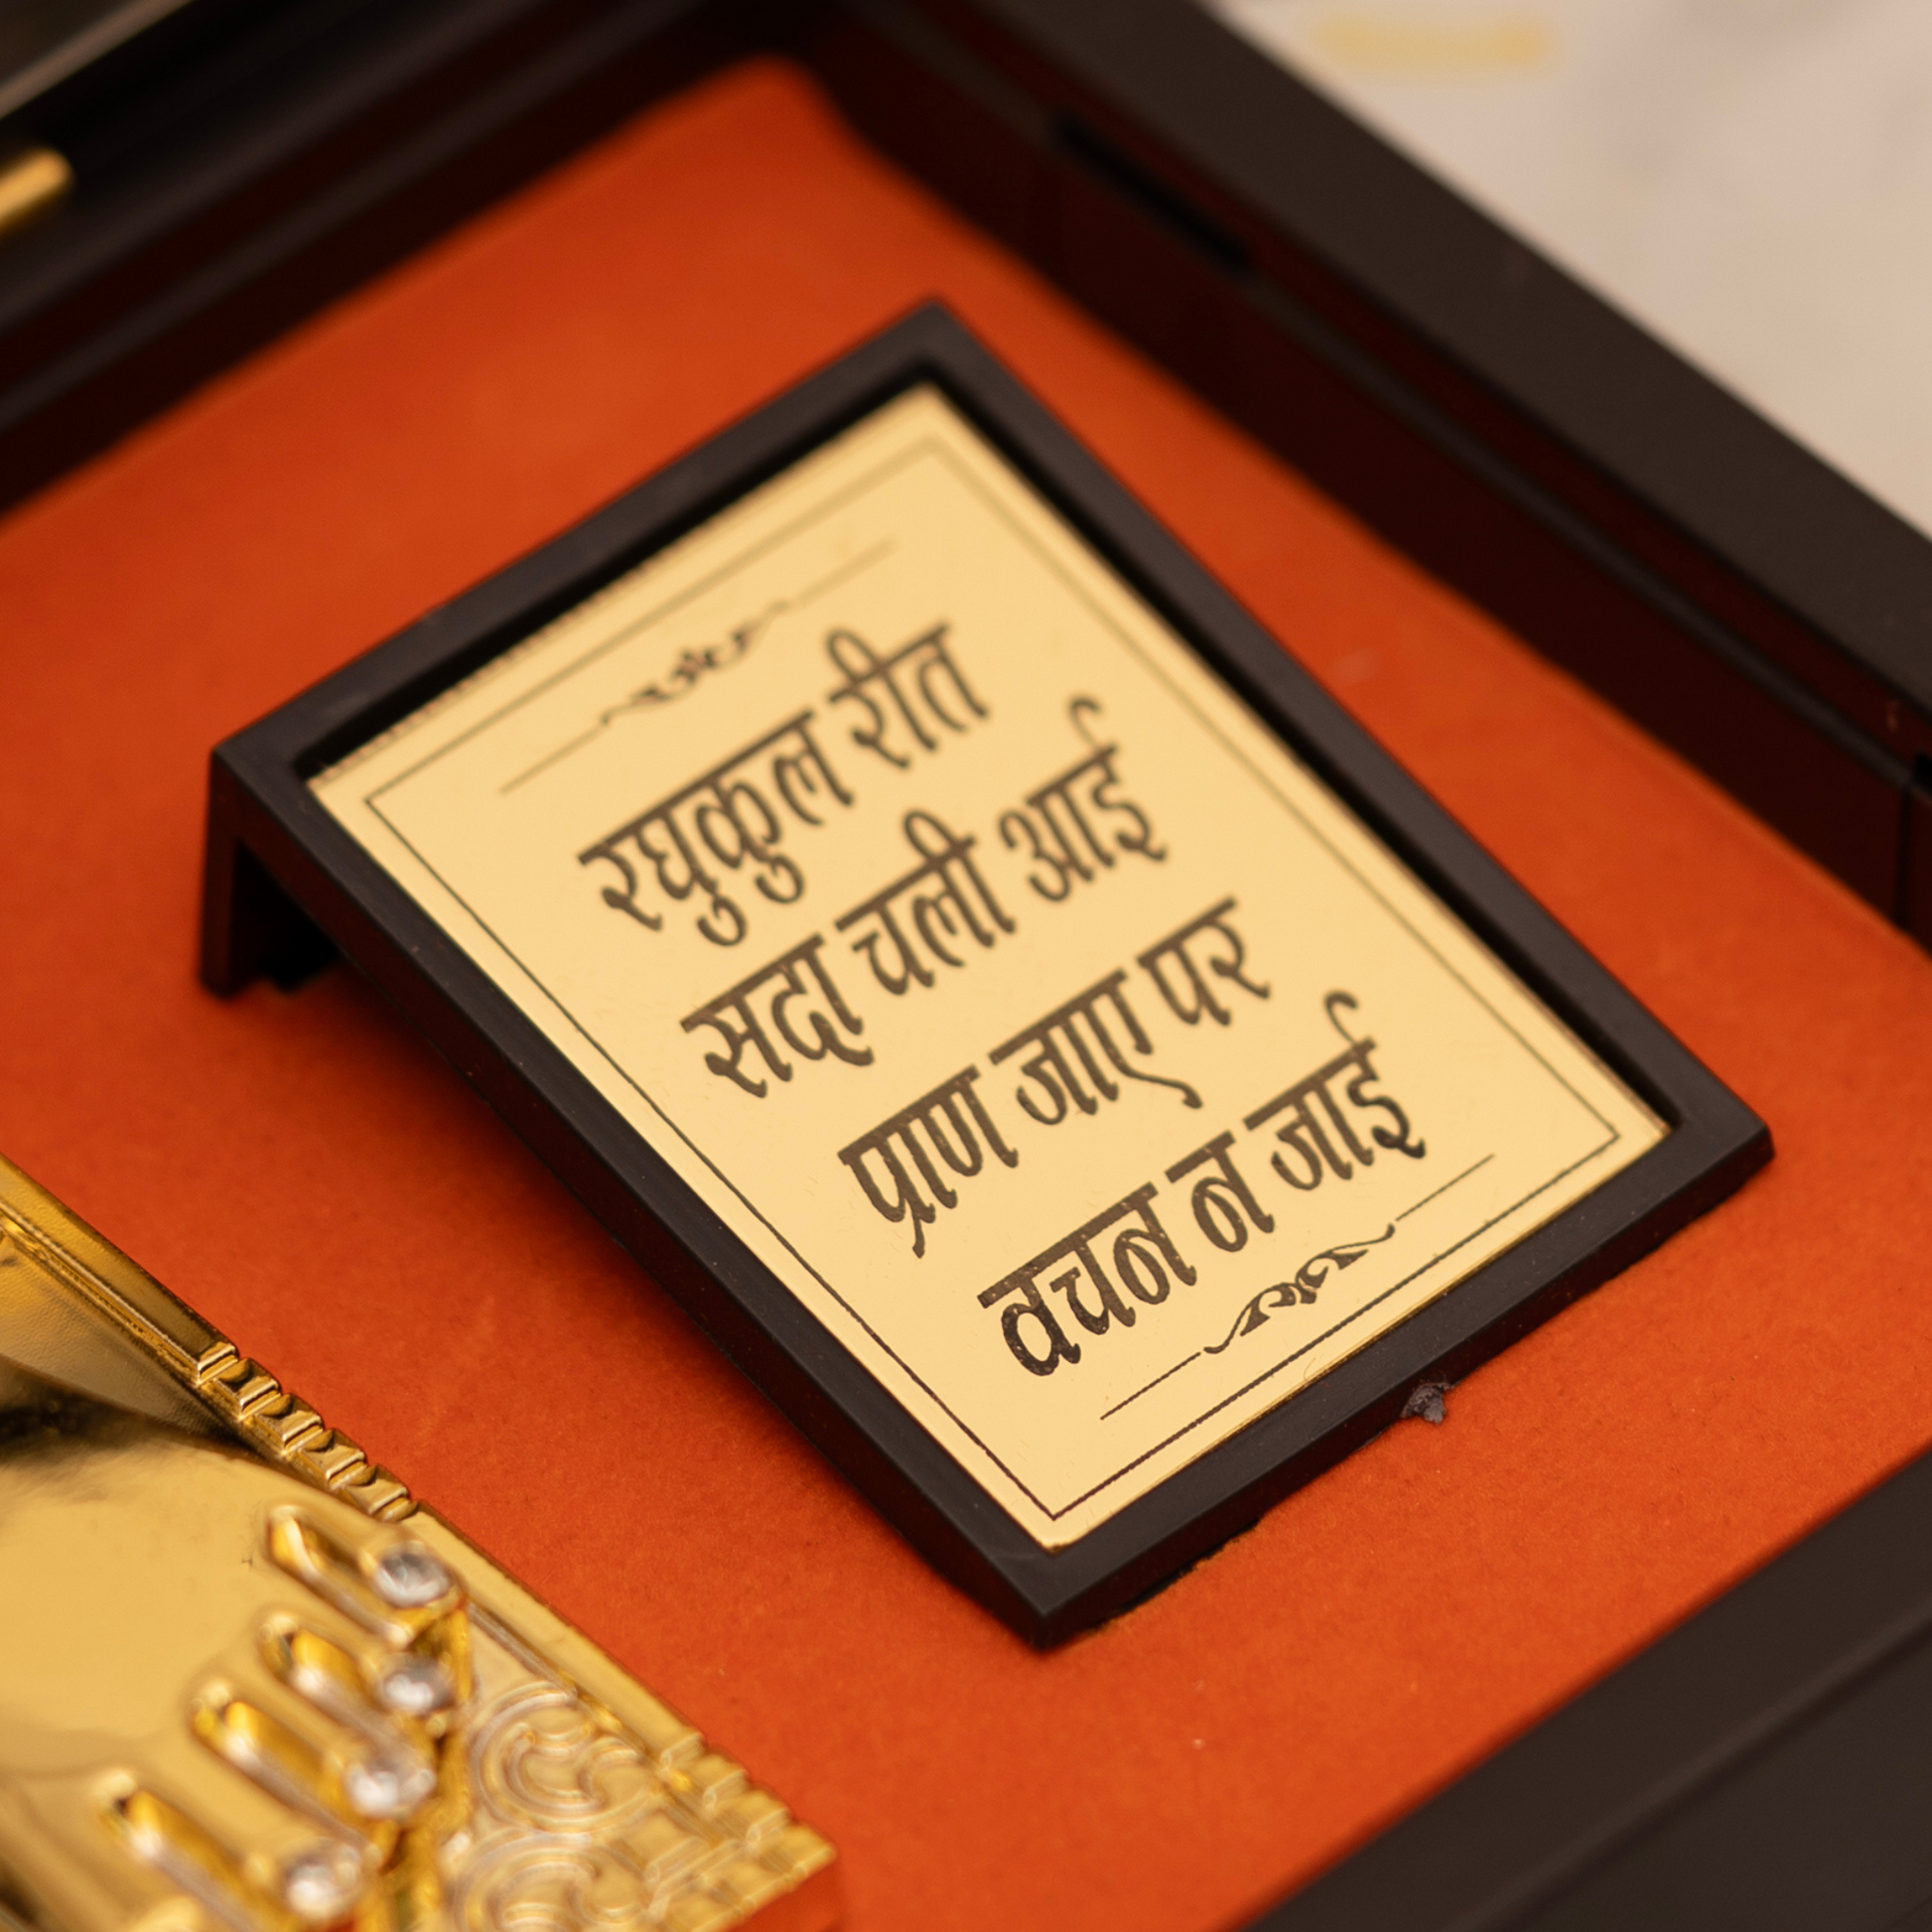 रघुकुल रीत
सदा चली आई
प्राण जाए पर
वचन न जाई